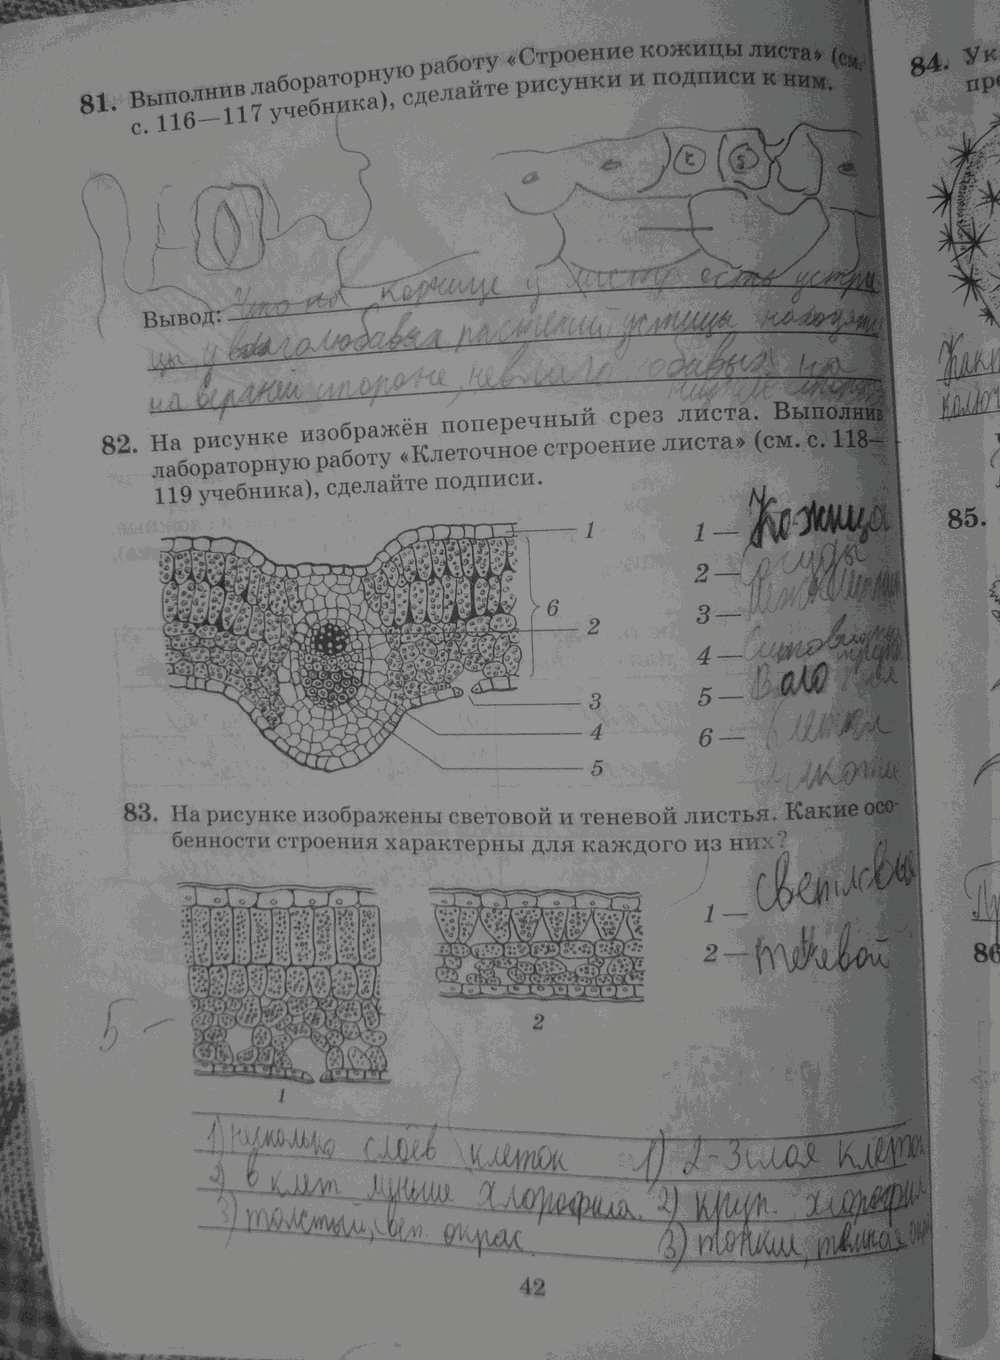 81. Выполнив лабораторную работу «Строение кожицы листа» (см.
с. 116—117 учебника), сделайте рисунки и подписи к ним.
Вывод: Что на кожице у листа есть устри
цы у влаголюбавых растений устицы находятс
на верхней стороне, невлаго юбавых на
нижней сторон
82. На рисунке изображён поперечный срез листа. Выполнив
лабораторную работу «Клеточное строение листа» (см. с. 118—
119 учебника), сделайте подписи.
1
6
2
3
4
5
1 — Кожица
2 — Сосуды
3 —
4 — Ситовидные
трубки
5 — Воло
6 — Клетки
мякоти
83. На рисунке изображены световой и теневой листья. Какие осо-
бенности строения характерны для каждого из них?
1 — световый
2 — теневой
1
2
5 —
1) несколько слоёв клеток 1) 2-3 слоя клеток
2) в клет меньше хлорофила. 2) круп. хлорофил
3) толстый, свет. окрас. 3) тонкий, тёмная окр
42
84. Ук
пр
Как
колюч
85.
Пр
86